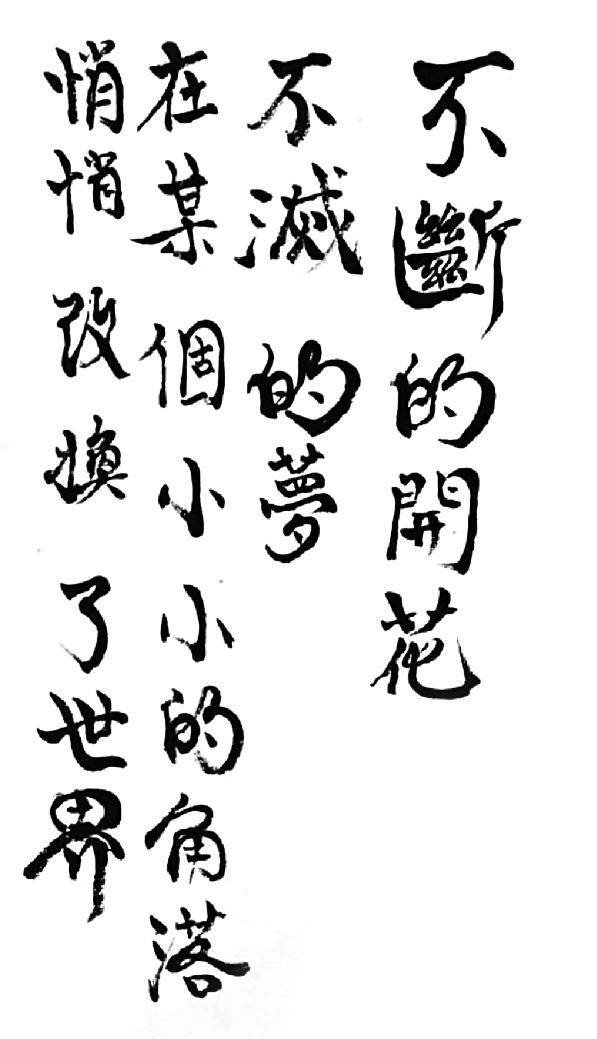 不斷的開花
不滅的夢
在某個小小的角落
悄悄改換了世界